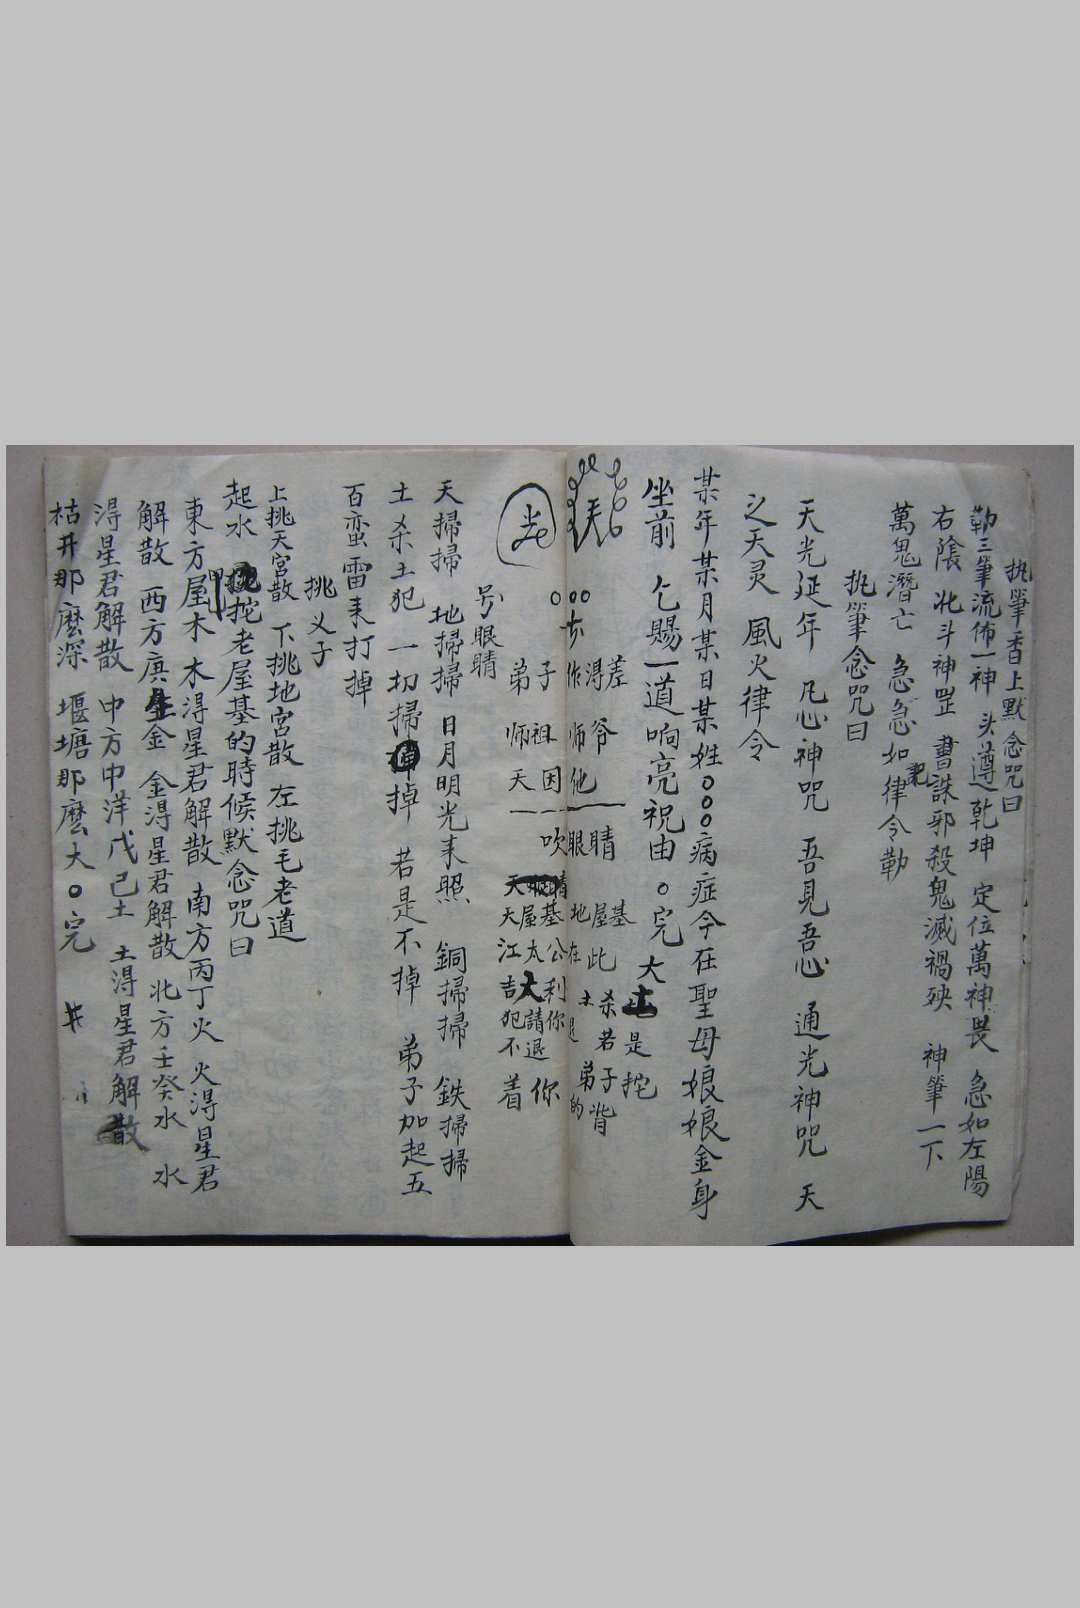 执筆香上默念咒曰
勅三筆流佈一神 头遵乾坤 定位萬神畏 急如左陽
右陰 北斗神罡 書誅邪殺鬼滅禍殃 神筆一下
萬鬼潛亡 急急如律令勒
执筆念咒曰
天光延年 凡心神咒 吾見吾心 通光神咒 天
之天灵 風火律令
某年某月某日某姓○○○病症今在聖母娘娘金身
坐前 乞赐一道响亮祝由○完 大
作得差
师爷
他
眼睛
地屋基
在此
土杀
若是
弟子挖
的背
○○○
弟子
师祖
天因
吹
天屋基
江太公
吉大利
犯請你
不退
着你
号眼睛
天掃掃 地掃掃 日月明光耒照 銅掃掃 鉄掃掃
土杀土犯一切掃掉 若是不掉 弟子加起五
百蛮雷耒打掉
挑义子
上挑天宫散 下挑地宫散 左挑毛老道
起水 挖老屋基的時候默念咒曰
東方屋木 木淂星君解散 南方丙丁火 火淂星君
解散 西方庚金 金淂星君解散 北方壬癸水 水
淂星君解散 中方中洋戊己土 土淂星君解散
枯井那麽深 堰塘那麽大○完 井